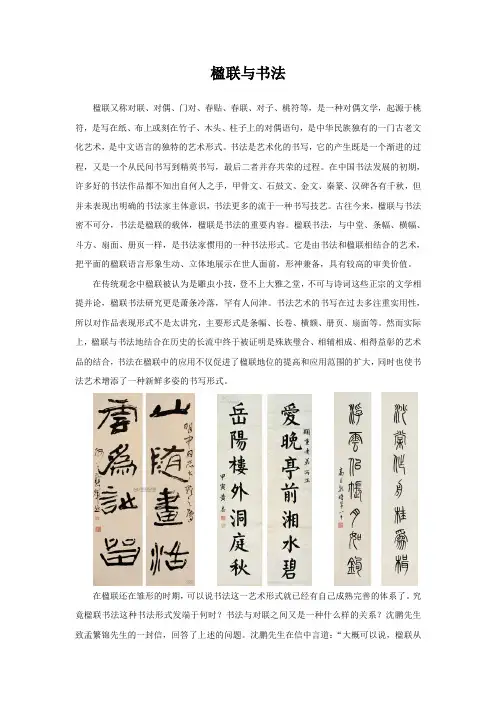 楹联与书法
楹联又称对联、对偶、门对、春贴、春联、对子、桃符等，是一种对偶文学，起源于桃
符，是写在纸、布上或刻在竹子、木头、柱子上的对偶语句，是中华民族独有的一门古老文
化艺术，是中文语言的独特的艺术形式。书法是艺术化的书写，它的产生既是一个渐进的过
程，又是一个从民间书写到精英书写，最后二者并存共荣的过程。在中国书法发展的初期，
许多好的书法作品都不知出自何人之手，甲骨文、石鼓文、金文、秦篆、汉碑各有千秋，但
并未表现出明确的书法家主体意识，书法更多的流于一种书写技艺。古往今来，楹联与书法
密不可分，书法是楹联的载体，楹联是书法的重要内容。楹联书法，与中堂、条幅、横幅、
斗方、扇面、册页一样，是书法家惯用的一种书法形式。它是由书法和楹联相结合的艺术，
把平面的楹联语言形象生动、立体地展示在世人面前，形神兼备，具有较高的审美价值。
在传统观念中楹联被认为是雕虫小技，登不上大雅之堂，不可与诗词这些正宗的文学相
提并论，楹联书法研究更是萧条冷落，罕有人问津。书法艺术的书写在过去多注重实用性，
所以对作品表现形式不是太讲究，主要形式是条幅、长卷、横额、册页、扇面等。然而实际
上，楹联与书法地结合在历史的长流中终于被证明是殊族璧合、相辅相成、相得益彰的艺术
品的结合，书法在楹联中的应用不仅促进了楹联地位的提高和应用范围的扩大，同时也使书
法艺术增添了一种新鲜多姿的书写形式。
山隨畫活
雲為詩留
愛晚亭前湘水碧
岳陽樓外洞庭秋
沙棠作舟桂為楫
浮雲似帳月如鉤
在楹联还在雏形的时期，可以说书法这一艺术形式就已经有自己成熟完善的体系了。究
竟楹联书法这种书法形式发端于何时？书法与对联之间又是一种什么样的关系？沈鹏先生
致孟繁锦先生的一封信，回答了上述的问题。沈鹏先生在信中言道：“大概可以说，楹联从